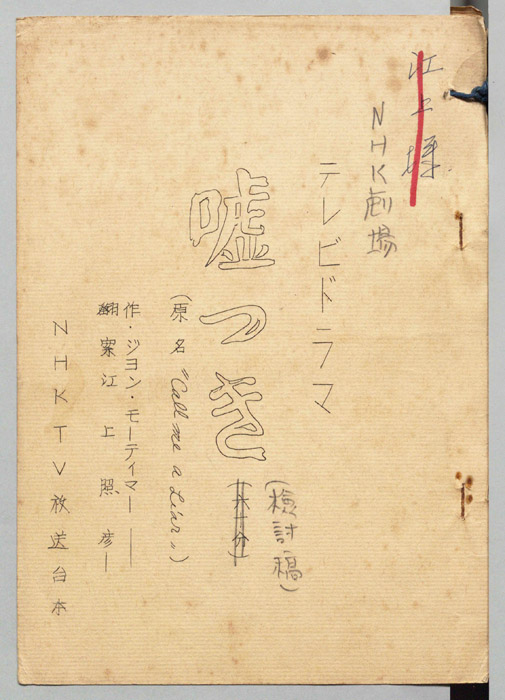 江上様
NHK劇場
テレビドラマ
(検討稿)
嘘つき(六十分)
(原名"Call me a Liar")
作・ジヨン・モーティマー
翻案江上照彦
NHKTV放送台本